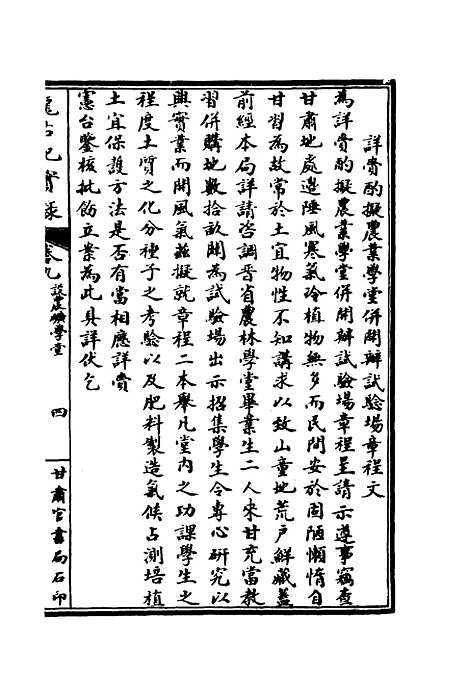 詳賫酌擬農業學堂併開辦試驗場章程文
為詳賫酌擬農業學堂併開辦試驗場章程呈請示遵事竊查
甘肅地處邊陲風寒氣冷植物無多而民間安於固陋懶惰自
甘習為故常於土宜物性不知講求以故山童地荒戶鮮藏蓋
前經本局詳請咨調晉省農林學堂畢業生二人來甘充當教
習併購地數拾畝開為試驗場出示招集學生令專心研究以
興實業而開風氣茲擬就章程二本舉凡堂內之功課學生之
程度土質之化分種子之考驗以及肥料製造氣候占測培植
土宜保護方法是否有當相應詳賫
憲台鑒核批飭立案為此具詳伏乞
卷九 設農礦學堂 四 甘肅官書局石印